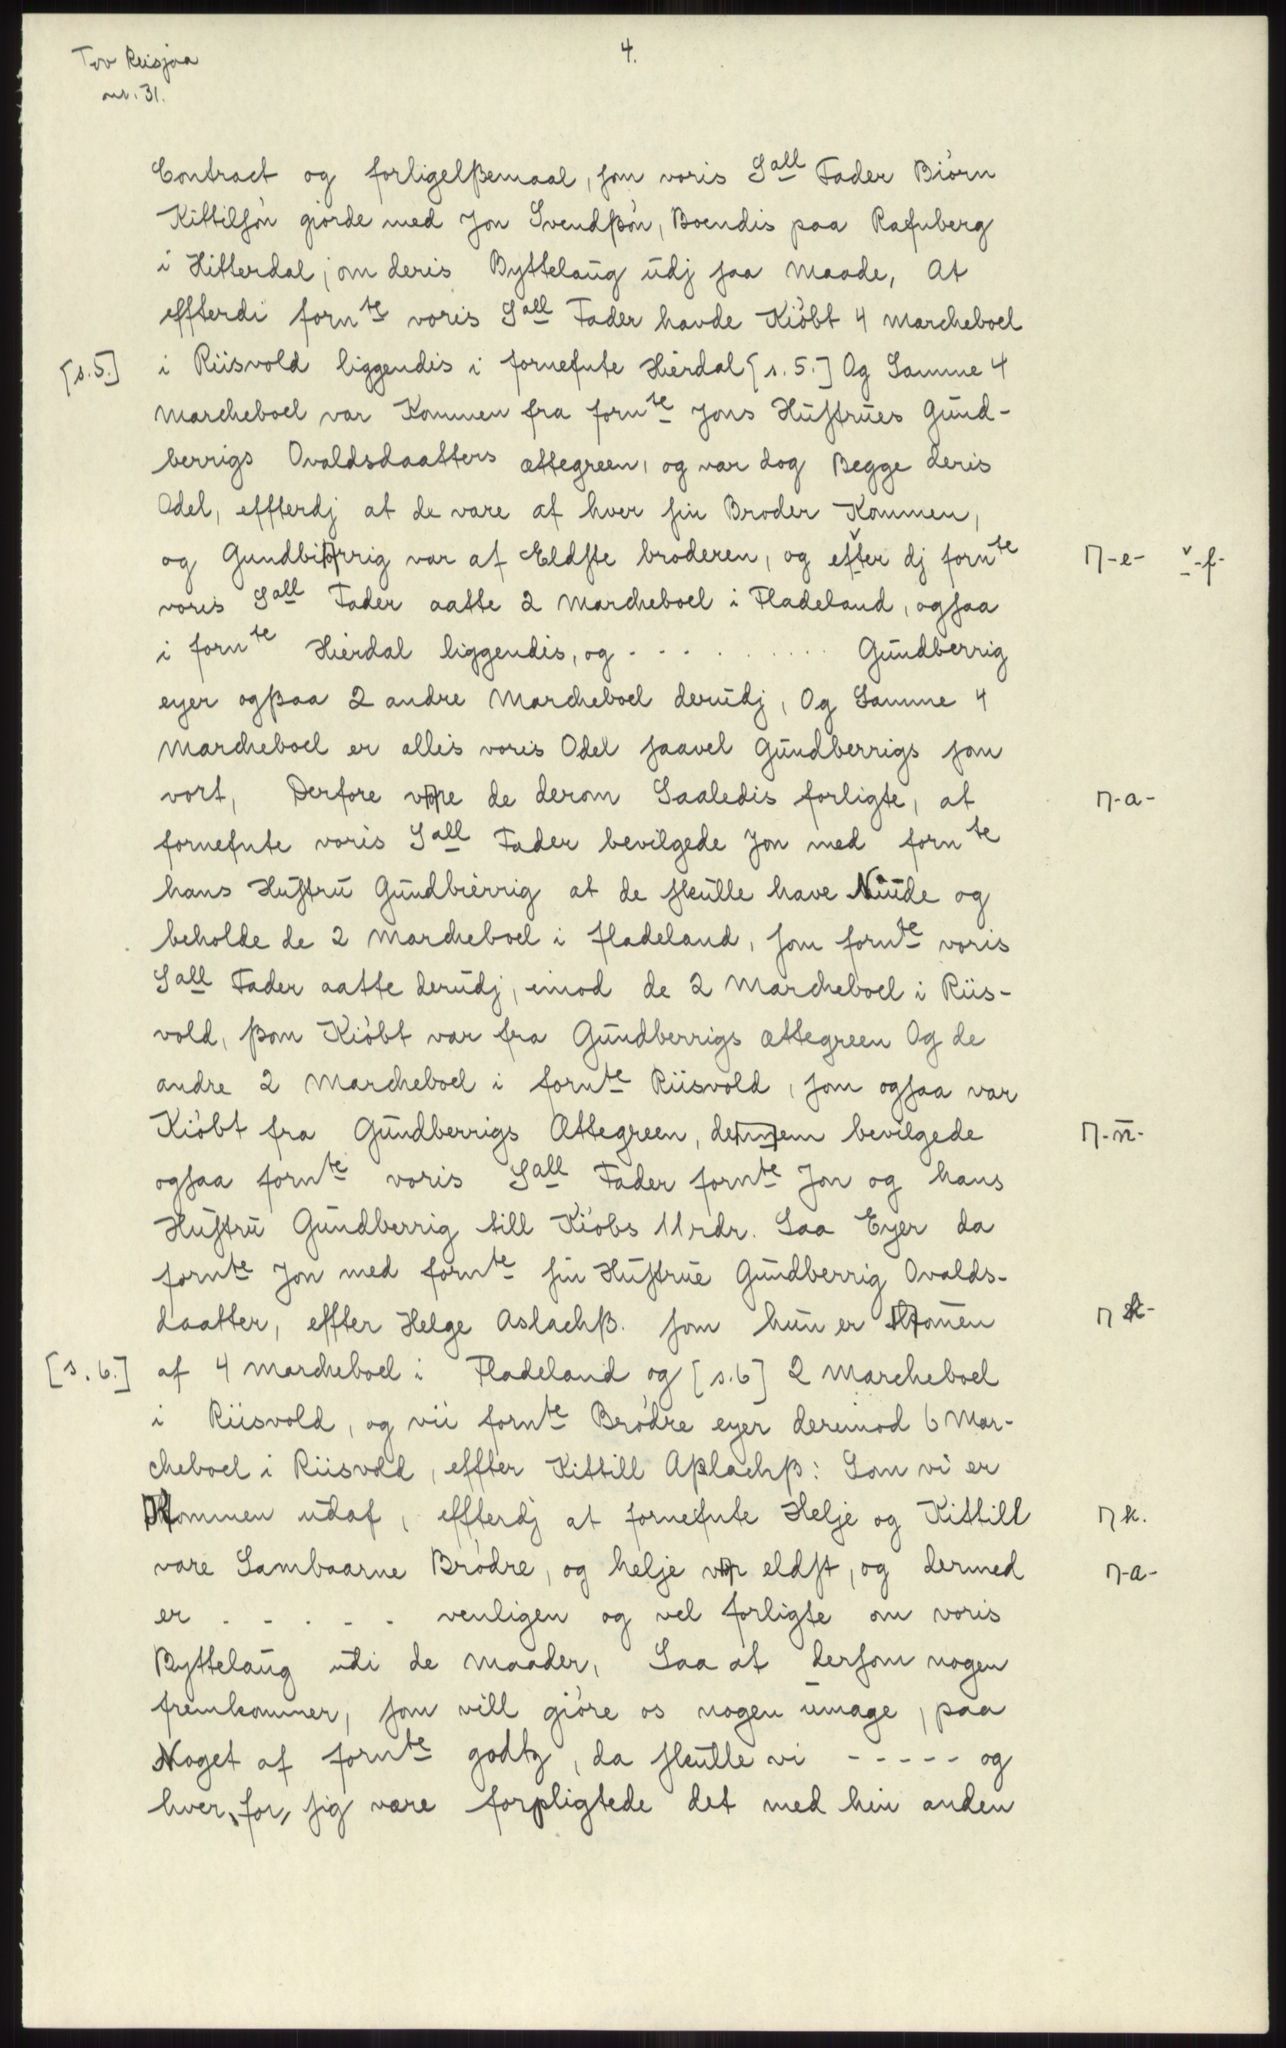 Tov Riisjaa
nr. 31.
4.
Contract og forligelßemaal, som voris Sall Fader Biörn
Kittilsön giorde med Jon Svendßön, Boendis paa Rafnberg
i Hitterdal, om deris Byttelaug udj saa Maade, At
effterdi fornte voris Sall Fader havde Kiöbt 4 marcheboel
[s.5.] i Riisvold liggendis i fornefnte Hierdal [s. 5.] Og Samme 4
Marcheboel var Kommen fra fornte Jons Hustrues Gund-
berrigs Ovaldsdaatters ættegreen, og var dog Begge deris
Odel, effterdj at de vare af hver sin Broder Kommen,
og Gundbierrig var af Eldste broderen, og efter dj fornte ⊓-e- v-f-
voris Sall Fader aatte 2 Marcheboel i Fladeland, ogsaa
i fornte Hierdal liggendis, og - - - . . . . . . . Gundberrig
eyer ogßaa 2 andre Marcheboel derudj, Og Samme 4
Marcheboel er alles voris Odel saavel Gundberrigs som
vort, Derfore vare de derom Saaledis forligte, at ⊓-a-
fornefnte voris Sall Fader bevilgede Jon med fornte
hans Hustru Gundbierrig at de skulle have Niude og
beholde de 2 Marcheboel i fladeland, som fornte voris
Sall Fader aatte derudj, imod de 2 Marcheboel i Riis-
vold, ßom Kiöbt var fra Gundberrigs ættegreen Og de
andre 2 Marcheboel i fornte Riisvold, som ogsaa var
Kiöbt fra Gundberrigs Ættegreen, dennem bevilgede ⊓-n-
ogsaa fornte voris Sall Fader fornte Jon og hans
Hustru Gundberrig till Kiöbs 11 rdr. Saa Eyer da
fornte Jon med fornte sin Hustrue Gundberrig Ovalds-
daatter, effter Helge Aslachß. som hun er Komen ⊓ k-
[s. 6.] af 4 Marcheboel i Fladeland og [s.6] 2 Marcheboel
i Riisvold, og vii fornte Brödre eyer deremod 6 Mar-
cheboel i Riisvold, effter Kittill Aßlachß: Som vi er
Kommen udaf, effterdj at fornefnte Helje og Kittill ⊓ k.
vare Sambaarne Brödre, og helje var eldst, og dermed ⊓-a-
er - - - - - venligen og vel forligte om voris
Byttelaug udi de Maader, Saa at dersom nogen
fremkommer, som vill giöre os nogen umage, paa
Noget af fornte godtz, da skulle vi - - - - - og
hver, for, sig være forpligtede det med hin anden